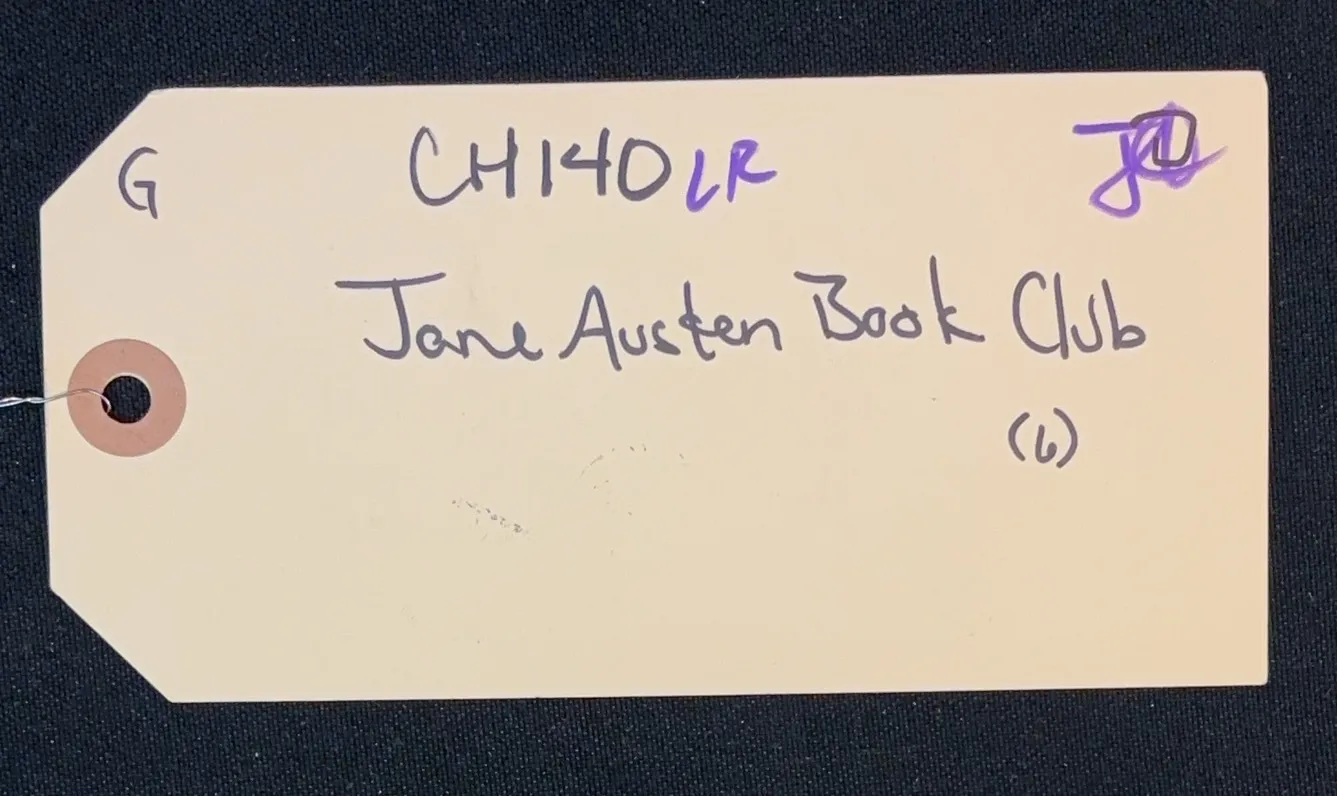 G CH140 LR
Jane Austen Book Club
(6)